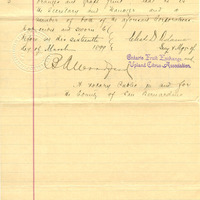 orange and grape fruit that he is
the Secretary and Manager and a
member of both of the aforesaid Corporations
Subscribed and sworn to
before me this sixteenth
day of March 1899
Secy & Mgr of
Ontario Fruit Exchange and
Upland Citrus Association.
A Notary Public in and for
the County of San Bernardino